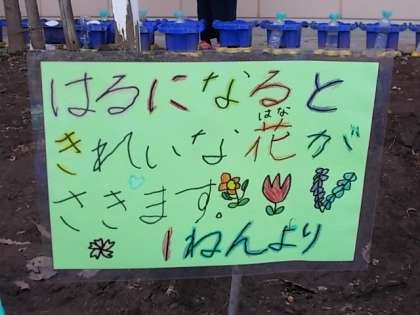 はるになると
きれいな花が
はな
さきます。
1ねんより